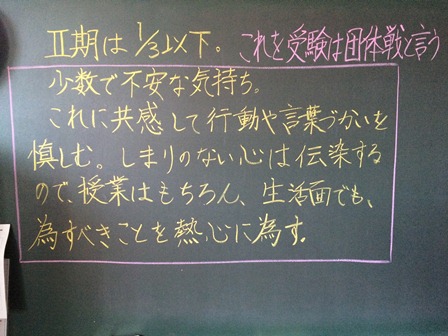 Ⅱ期は1/3以下。これを受験は団体戦と言う
少数で不安な気持ち。
これに共感して行動や言葉づかいを
慎しむ。しまりのない心は伝染する
ので、授業はもちろん、生活面でも、
為すべきことを熱心に為す。